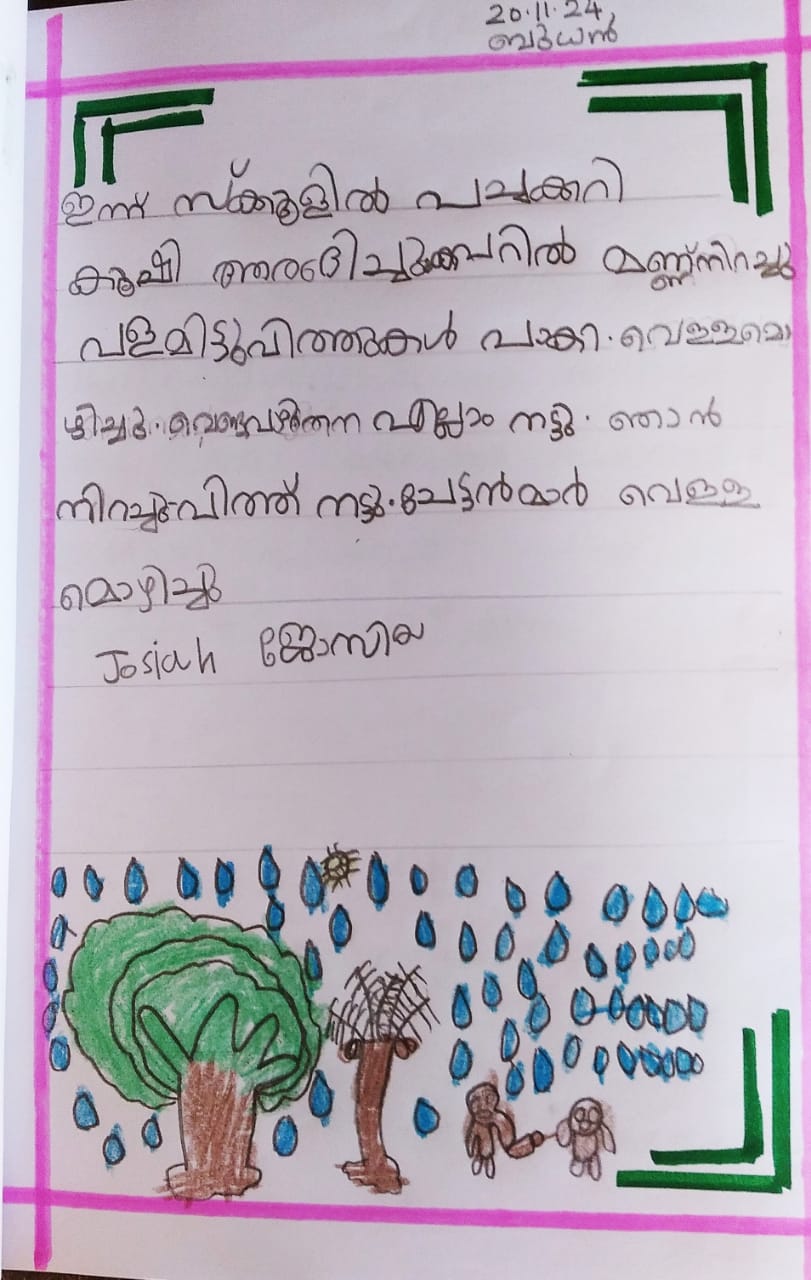 20.11.24
ബുധൻ
ഇന്ന് സ്ക്കൂളിൽ പച്ചക്കറി
കൃഷി ആരംഭിച്ചു കവറിൽ മണ്ണ് നിറച്ചു
പളമിട്ടു വിത്തുകൾ പാകി. വെള്ളമൊ
ഴിച്ചു. വെണ്ടവഴുതന എല്ലാം നട്ടു. ഞാൻ
നിറച്ചു വിത്ത് നട്ടു. ചേട്ടൻമാർ വെള്ള
മൊഴിച്ചു
Josiah ജോസിയ